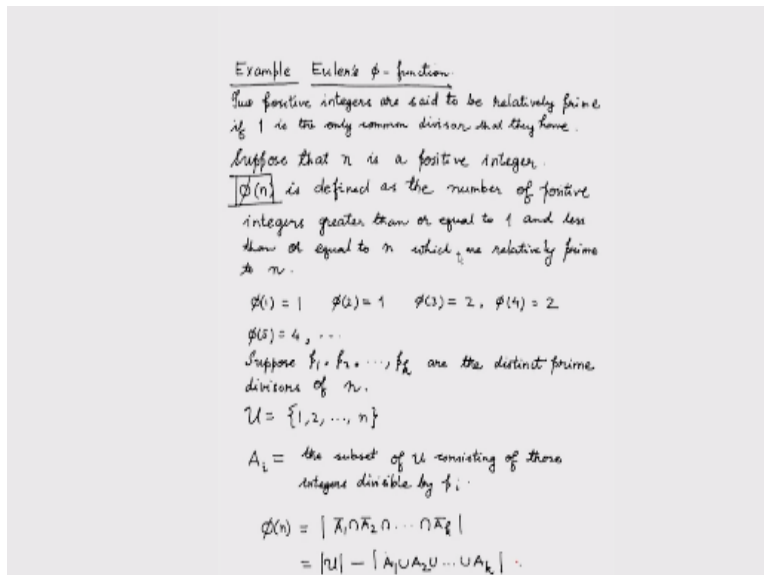 Example Euler's ϕ-function.
Two positive integers are said to be relatively prime
if 1 is the only common divisor that they have.
Suppose that n is a positive integer.
ϕ(n) is defined as the number of positive
integers greater than or equal to 1 and less
than or equal to n which are relatively prime
to n.
ϕ(1) = 1 ϕ(2) = 1 ϕ(3) = 2, ϕ(4) = 2
ϕ(5) = 4, ...
Suppose p₁, p₂, ..., pₖ are the distinct prime
divisors of n.
U = {1,2, ..., n}
Aᵢ = the subset of U consisting of those
integers divisible by pᵢ.
ϕ(n) = | A̅₁∩A̅₂∩...∩A̅ₖ |
= |U| − | A₁∪A₂∪...∪Aₖ |